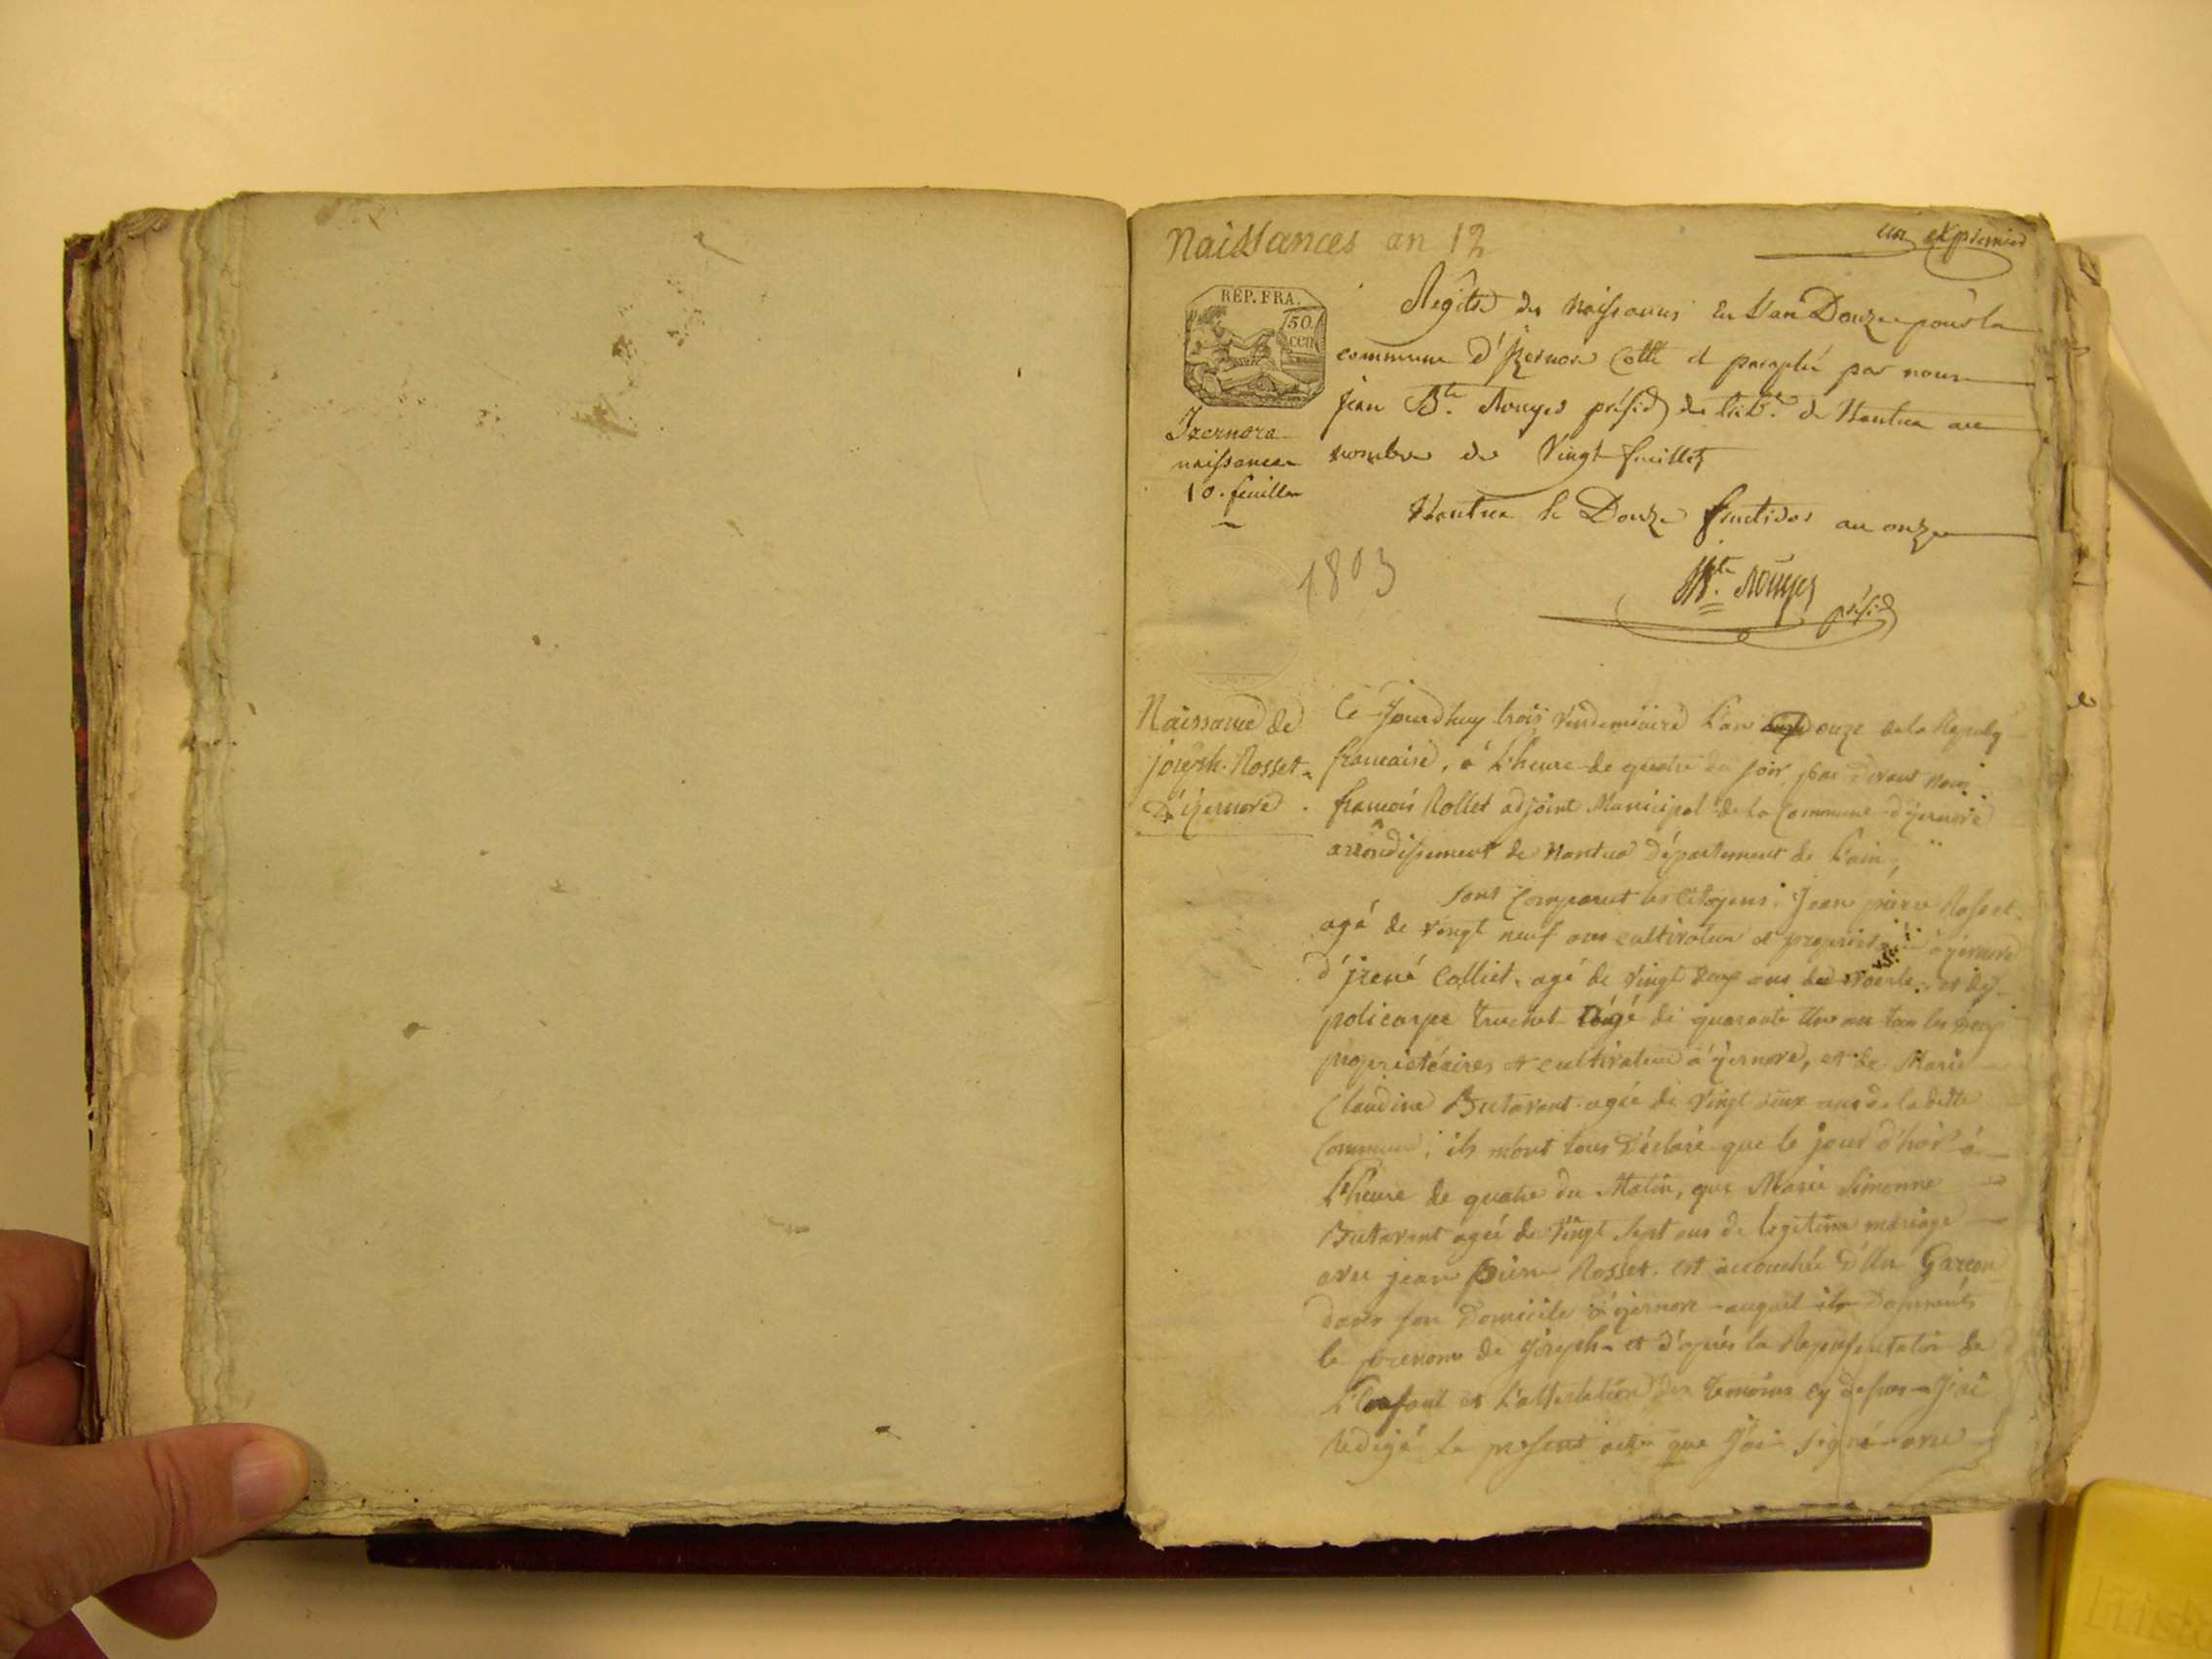 Naissances an 12
un et premier
REP. FRA.
50
cen
Izernore
naissances
10. feuilles
Régitre des naissances de l'an Douze pour la
commune d'Izernore Cotté et paraphé par nous
jean Bte. Rouyer présid du trib. de Nantua au
nombre de Vingt feuillets
Nantua le Douze fructidor an onze
1803
Bte. Rouyer
présid
Naissance de
joseph. Rosset.
D'izernore.
Ce jourdhuy trois Vendemiaire L'an douze de la Repubq
francaise, à L'heure de quatre du soir, par devant nous
francois Rollet adjoint Municipal de la Commune d'izernore
arrondissement de Nantua Département de L'ain,
sont Comparut les Citoyens: Jean pierre Rosset
agé de vingt neuf ans cultivateur et propriétaire à izernore
d'jrené Colliet. agé de vingt deux ans et de
policarpe Truchet agé de quarante Un an tous les deux
propriétéaires et cultivateur à izernore, et de Marie
Claudine Buttavant agée de vingt deux ans de la ditte
Commune; ils m'ont tous déclaré que le jour d'hier à
L'heure de quatre du Matin, que Marie Simonne
Buttavant agée de Vingt Sept ans de legitime mariage
avec jean pierre Rosset. est accouchée d'Un Garçon
dans son Domicile d'izernore auquel ils donnent
le prenom de joseph et d'après la Representation de
L'Enfant et L'attestation des temoins cy dessus J'ai
Redigé le present acte que J'ai signé avec